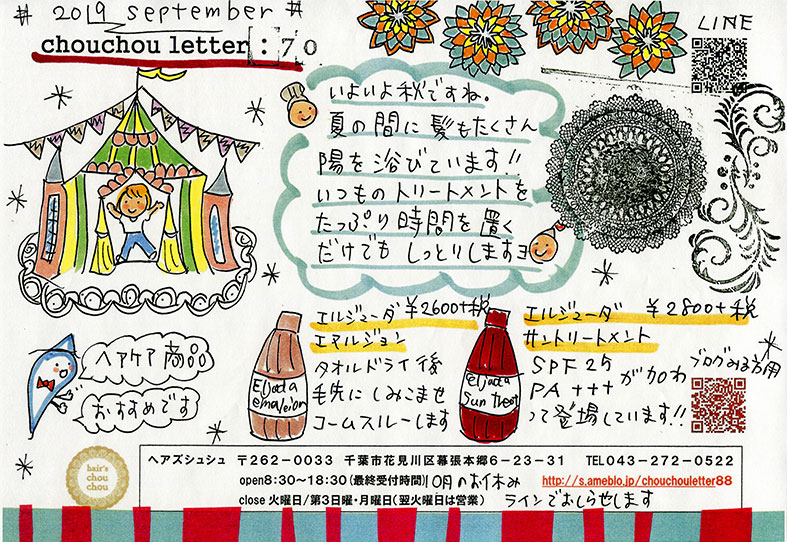 # 2019 september #
chouchou letter : 70
LINE
いよいよ秋ですね。
夏の間に髪もたくさん
陽を浴びています!!
いつものトリートメントを
たっぷり時間を置く
だけでもしっとりしますヨ
ヘアケア商品
おすすめです
エルジューダ ¥2600+税
エマルジョン
タオルドライ後
毛先にしみこませ
コームスルーします
Eljuda
emalsion
エルジューダ ¥2800+税
サントリートメント
SPF 25
PA +++ が加わ
って登場しています!!
eljuda
Sun treat
ブログみる方用
hair's
chou
chou
ヘアズシュシュ 〒262-0033 千葉市花見川区幕張本郷6-23-31 TEL043-272-0522
open8:30~18:30(最終受付時間) 10月のお休み http://s.ameblo.jp/chouchouletter88
close 火曜日/第3日曜・月曜日(翌火曜日は営業) ラインでおしらせします